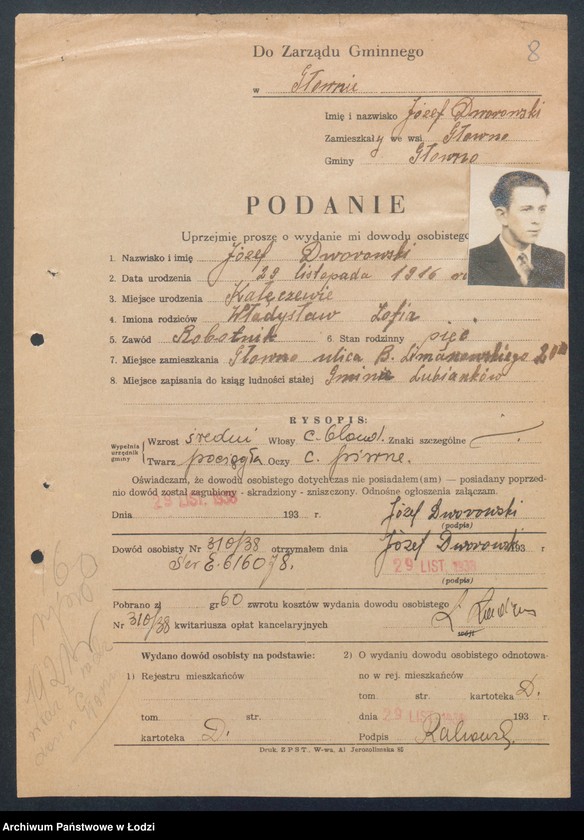 8
Do Zarządu Gminnego
w Głownie
Imię i nazwisko Józef Dworowski
Zamieszkały we wsi Głowno
Gminy Głowno
PODANIE
Uprzejmie proszę o wydanie mi dowodu osobistego
1. Nazwisko i imię Józef Dworowski
2. Data urodzenia 29 listopada 1916
3. Miejsce urodzenia Kalęczewie
4. Imiona rodziców Władysław Zofia
5. Zawód Robotnik 6. Stan rodzinny pięć
7. Miejsce zamieszkania Głowno ulica B. Limanowskiego
8. Miejsce zapisania do ksiąg ludności stałej Gmina Lubianków
RYSOPIS:
Wypełnia urzędnik gminy
Wzrost średni Włosy c. blond. Znaki szczególne
Twarz pociągła Oczy c. piwne.
Oświadczam, że dowodu osobistego dotychczas nie posiadałem(am) — posiadany poprzed-
nio dowód został zagubiony - skradziony - zniszczony. Odnośne ogłoszenia załączam.
Dnia 29 LIST. 1938 193 r. Józef Dworowski
(podpis)
Dowód osobisty Nr 310/38 otrzymałem dnia Józef Dworowski 193 r
Ser E. 616078. 29 LIST 1938
(podpis)
Pobrano zł gr 60 zwrotu kosztów wydania dowodu osobistego
Nr 310/38 kwitariusza opłat kancelaryjnych
wójt
Wydano dowód osobisty na podstawie:
1) Rejestru mieszkańców
tom str.
kartoteka D.
2) O wydaniu dowodu osobistego odnotowa-
no w rej. mieszkańców
tom str. kartoteka D.
dnia 29 LIST. 1938 193 r.
Podpis
Druk. EPST., W-wa, Al Jerozolimska 85
Archiwum Państwowe w Łodzi